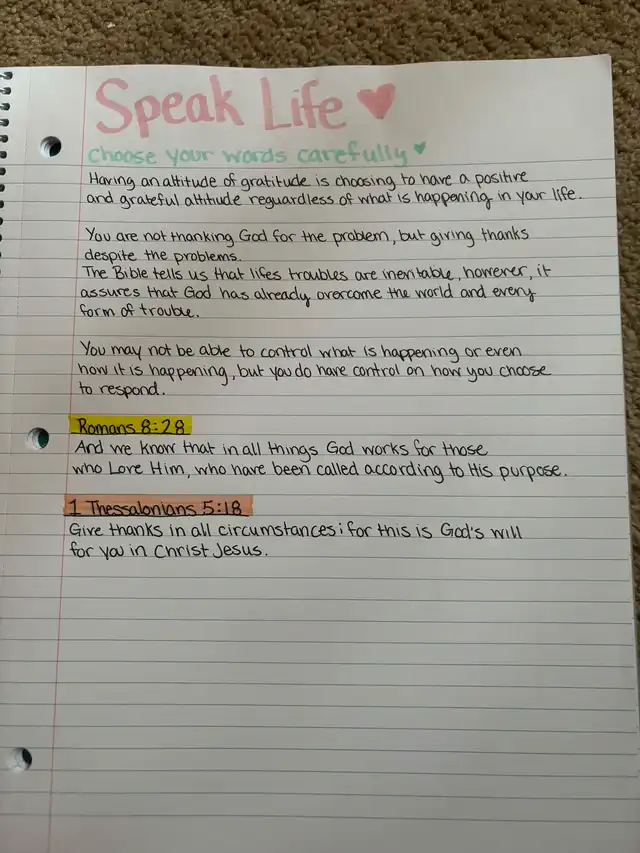 Speak Life ♥
choose your words carefully ♥
Having an attitude of gratitude is choosing to have a positive
and grateful attitude reguardless of what is happening in your life.
You are not thanking God for the problem, but giving thanks
despite the problems.
The Bible tells us that lifes troubles are inevitable, however, it
assures that God has already overcome the world and every
form of trouble.
You may not be able to control what is happening or even
how it is happening, but you do have control on how you choose
to respond.
Romans 8:28
And we know that in all things God works for those
who Love Him, who have been called according to His purpose.
1 Thessalonians 5:18
Give thanks in all circumstances; for this is God's will
for you in Christ Jesus.